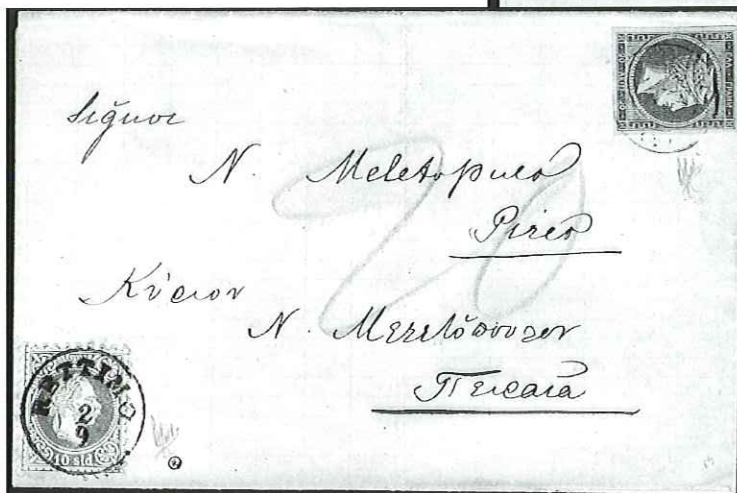 Signor
N. Meletopulo
Pireo
20
Κύριον
Ν. Μελετόπουλον
Πειραιά
RETTIMO
2
9